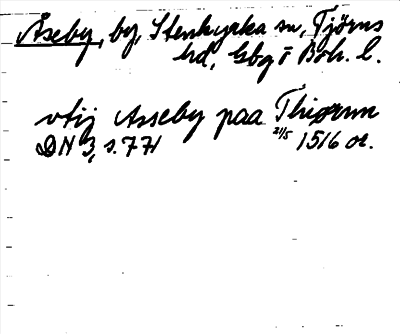 Åseby, by, Stenkyrka sn, Tjörns
hd, Gbg o Boh. l.
vtij Asseby paa Thiørnn
DN 3, s. 771 21/5 1516 or.